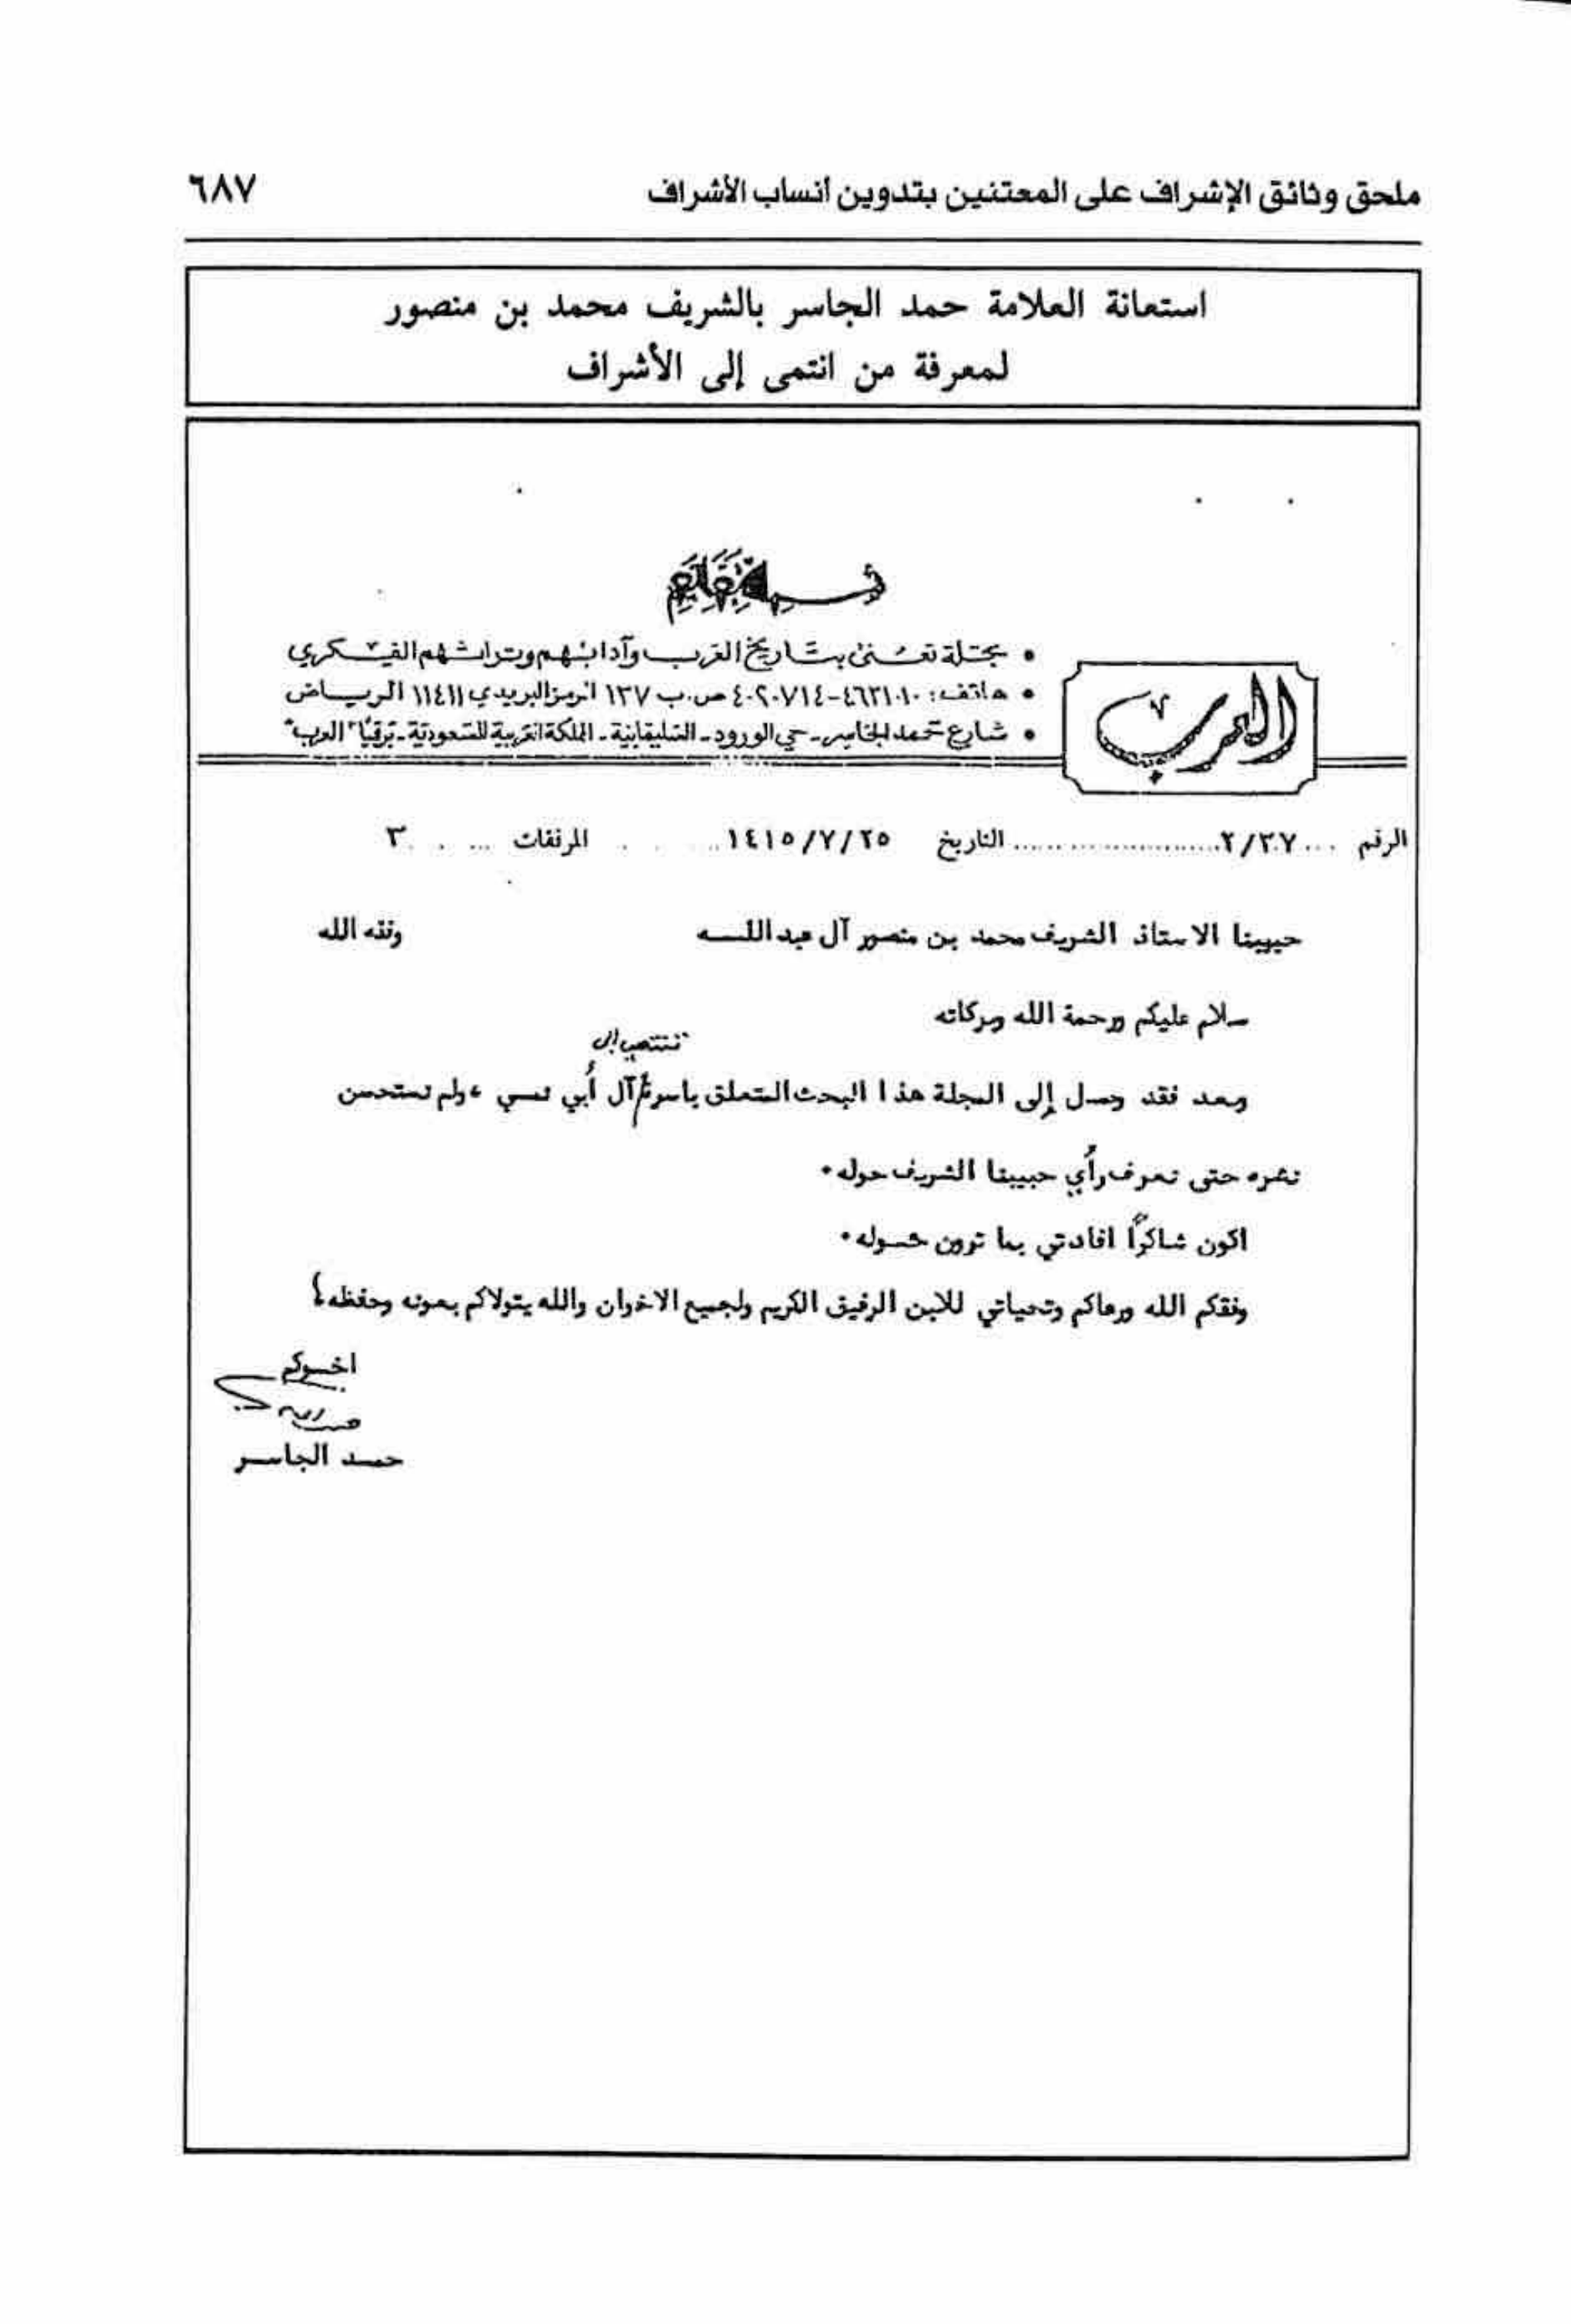 ملحق وثائق الإشراف على المعتنين بتدوين أنساب الأشراف
٦٨٧
استعانة العلامة حمد الجاسر بالشريف محمد بن منصور
لمعرفة من انتمى إلى الأشراف
العرب
• مجلة تعنى بتاريخ العرب وآدابهم وتراثهم الفكري
• هاتف: ٤٦٢١٠١٠-٤٠٢٠٧١٤ ص.ب ١٣٧ الرمز البريدي ١١٤١١ الرياض
• شارع حمد الجاسر - حي الورود - السليمانية - المملكة العربية السعودية - برقيًا "العرب"
الرقم ٢/٣٠٧ التاريخ ١٤١٥/٧/٢٥ المرفقات ٣
حبيبنا الاستاذ الشريف محمد بن منصور آل عبد اللـــه وفقه الله
سلام عليكم ورحمة الله وبركاته
تنتسب إلى
وبعد فقد وصل إلى المجلة هذا البحث المتعلق بأسرة آل أبي نمي ، ولم نستحسن
نشره حتى نعرف رأي حبيبنا الشريف حوله ٠
اكون شاكرًا افادتي بما ترون حـــوله ٠
وفقكم الله ورعاكم وتحياتي للابن الرفيق الكريم ولجميع الاخوان والله يتولاكم بعونه وحفظه
اخـــوكم
حمـــد الجاســـر